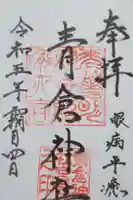 奉拝
眼病平癒
青倉神社
令和五年霜月四日